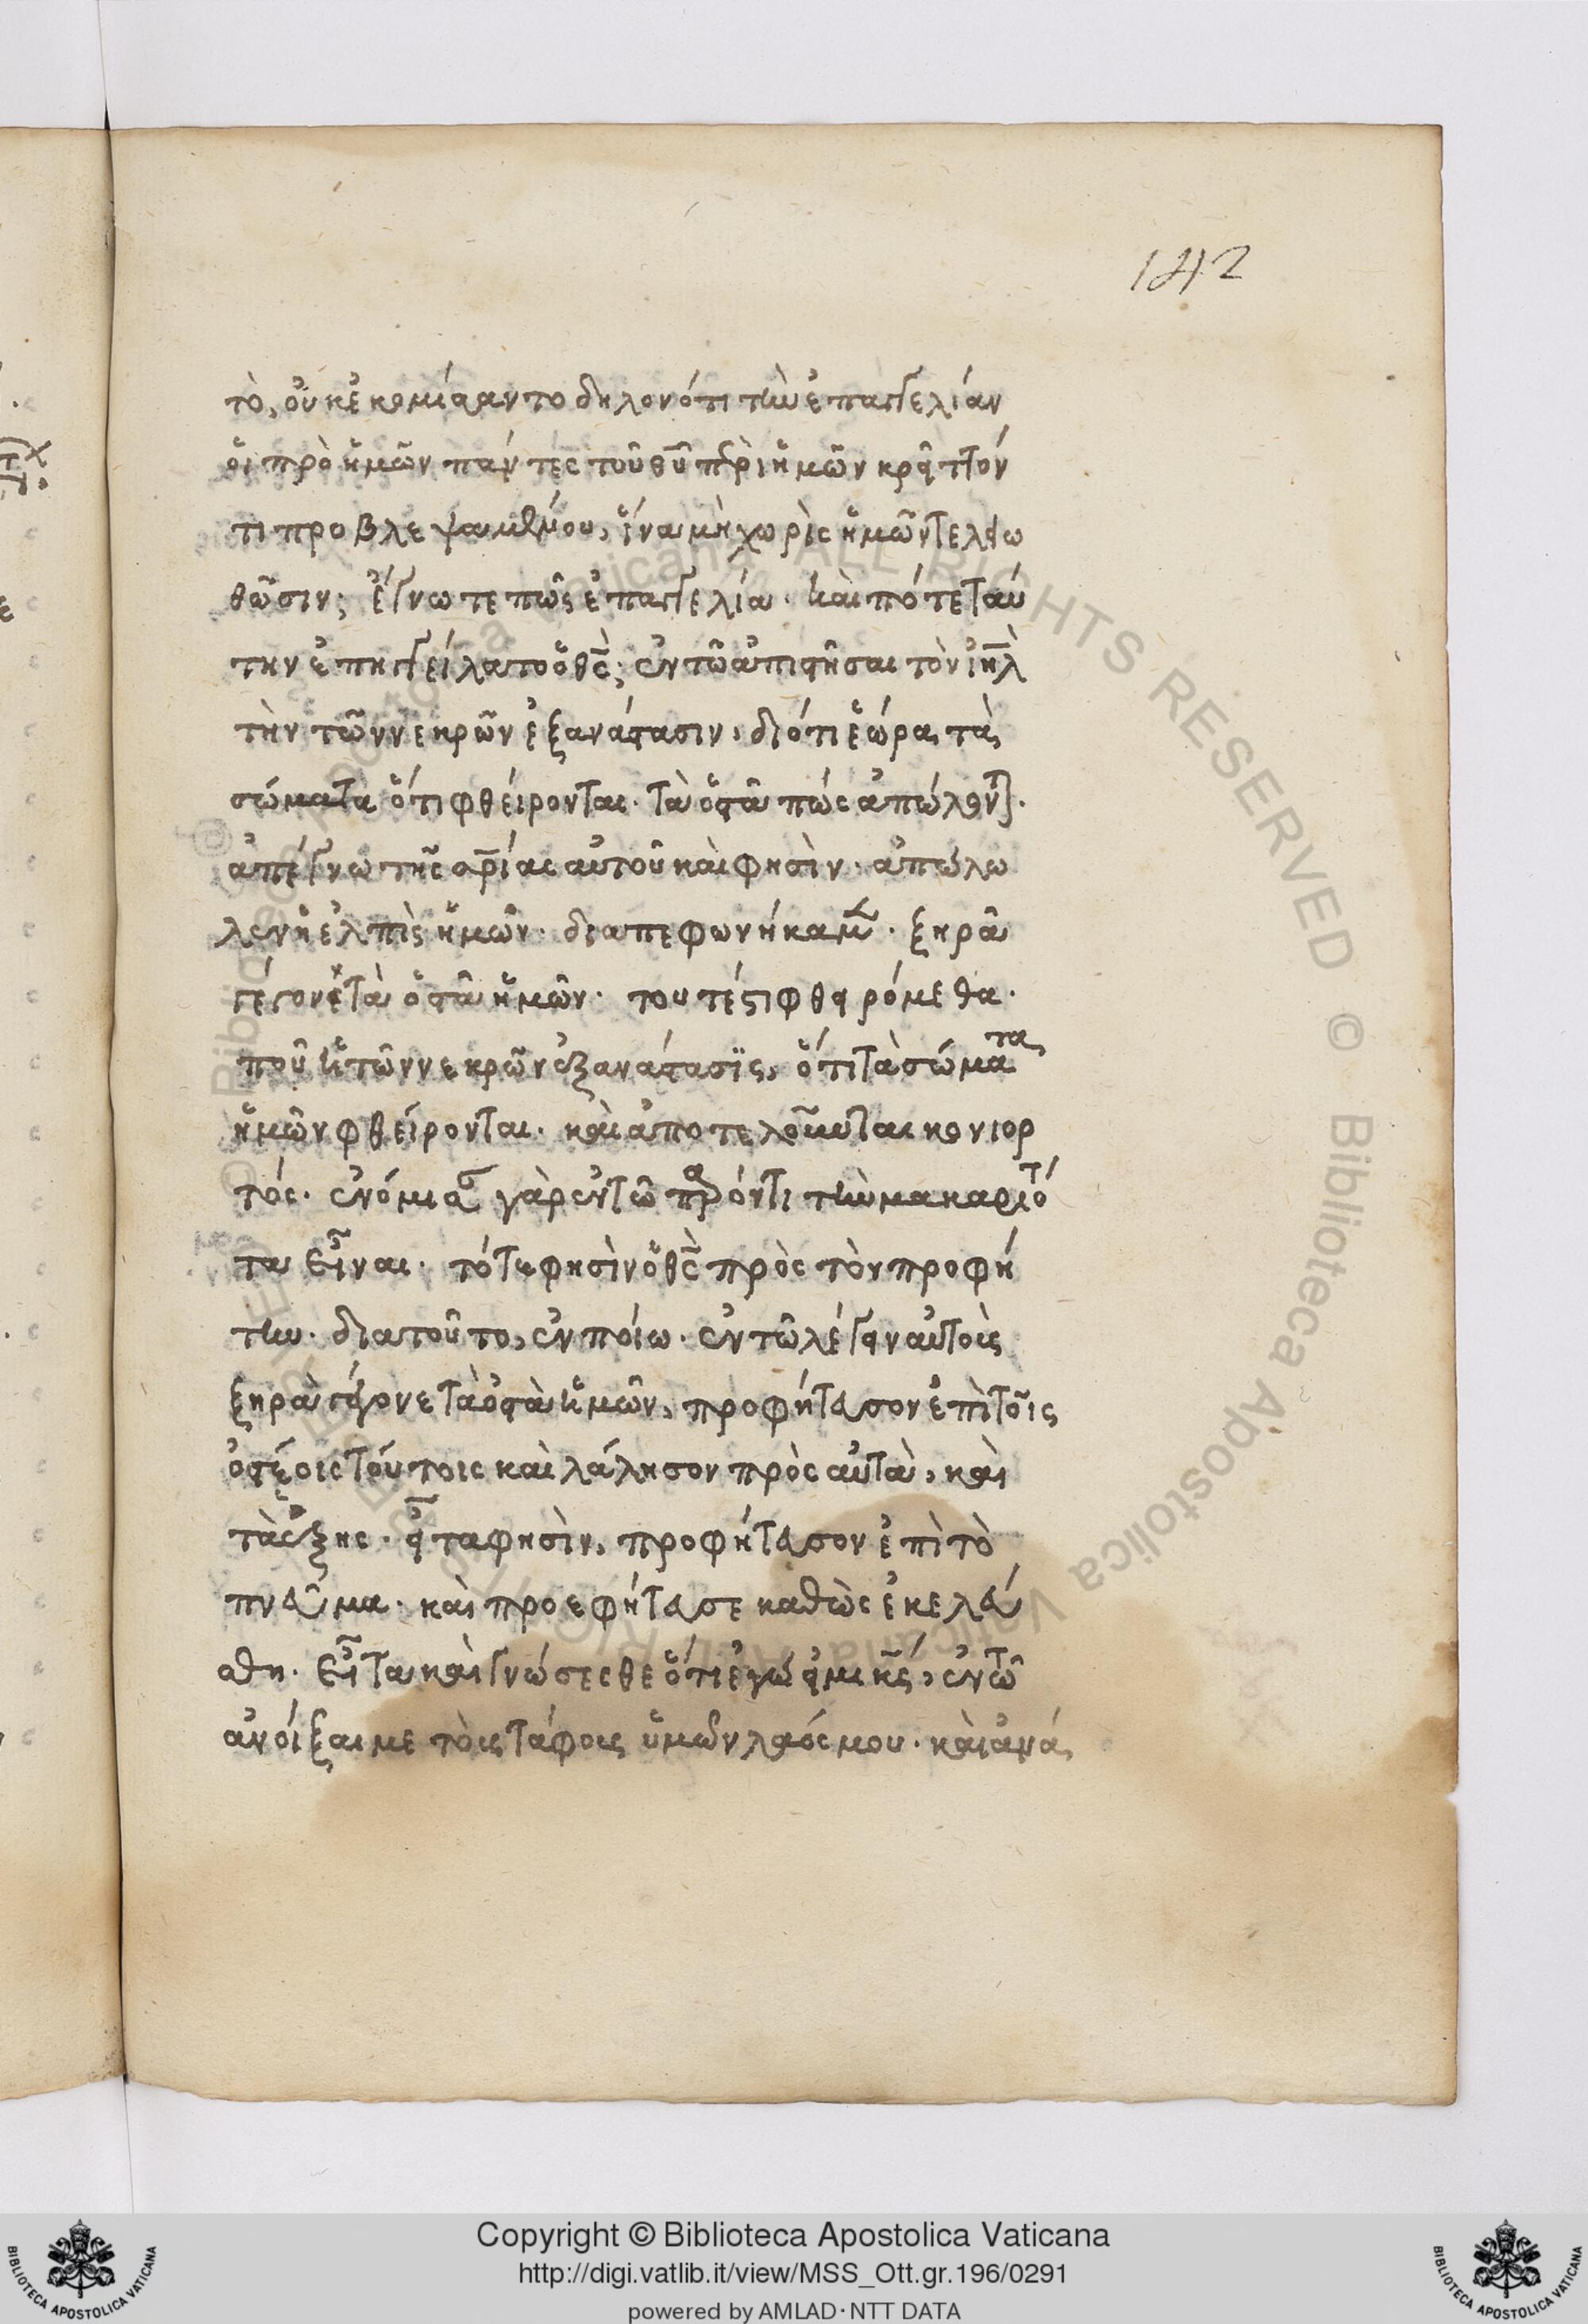 142
τὸ, οὐκ ἐκομίσαντο δηλονότι τὴν ἐπαγγελίαν
οἱ πρὸ ἡμῶν πάντες τοῦ θῦ πρὶ ἡμῶν κρεῖττόν
τι προβλεψαμένου, ἵνα μὴ χωρὶς ἡμῶν τελειω
θῶσιν; ἔγνωτε πῶς ἐπαγγελία· καὶ πότε ταύ
την ἐπηγγείλατο ὁ θς̄; ἐν τῶ ἀπιστῆσαι τὸν ιηλ̄
τὴν τῶν νεκρῶν ἐξανάστασιν, διότι ἑώρα, τὰ
σώματα ὅτι φθείρονται· τὰ ὀστᾶ πώς ἀπώλοντ
ἀπέγνω τῆς σρ̄ίας αὐτοῦ καὶ φησὶν· ἀπώλω
λεν ἡ ἐλπὶς ἡμῶν· διαπεφωνήκαμεν· ξηρὰ
γέγονε τὰ ὀστᾶ ἡμῶν· τουτέστι φθειρόμεθα·
ποῦ ἡ τῶν νεκρῶν ἐξανάστασϊς, ὅτι τὰ σώματα
ἡμῶν φθείρονται· καὶ ἀποτελοῦνται κονιορ
τός· ἐνόμισε γὰρ ἐν τῶ παρόντι τὴν μακαριότη
τα εἶναι· τότε φησὶν ὁ θς̄ πρὸς τὸν προφή
την· διατοῦτο, ἐν ποίω· ἐν τῶ λέγειν αὐτοὺς
ξηρὰ γέγονε τὰ ὀστὰ ἡμῶν, προφήτευσον ἐπὶ τοῖς
ὀστέοις τούτοις καὶ λάλησον πρὸς αὐτὰ, καὶ
τὰ ἑξῆς· εἶτα φησὶν, προφήτευσον ἐπὶ τὸ
πνεῦμα· καὶ προεφήτευσε καθὼς ἐκελεύ
σθη· εἶτα καὶ γνώσεσθε ὅτι ἐγώ εἰμι κς̄, ἐν τῶ
ἀνοίξαι με τοὺς τάφους ὑμῶν λαός μου· καὶ ἀνά
Copyright © Biblioteca Apostolica Vaticana
http://digi.vatlib.it/view/MSS_Ott.gr.196/0291
powered by AMLAD·NTT DATA